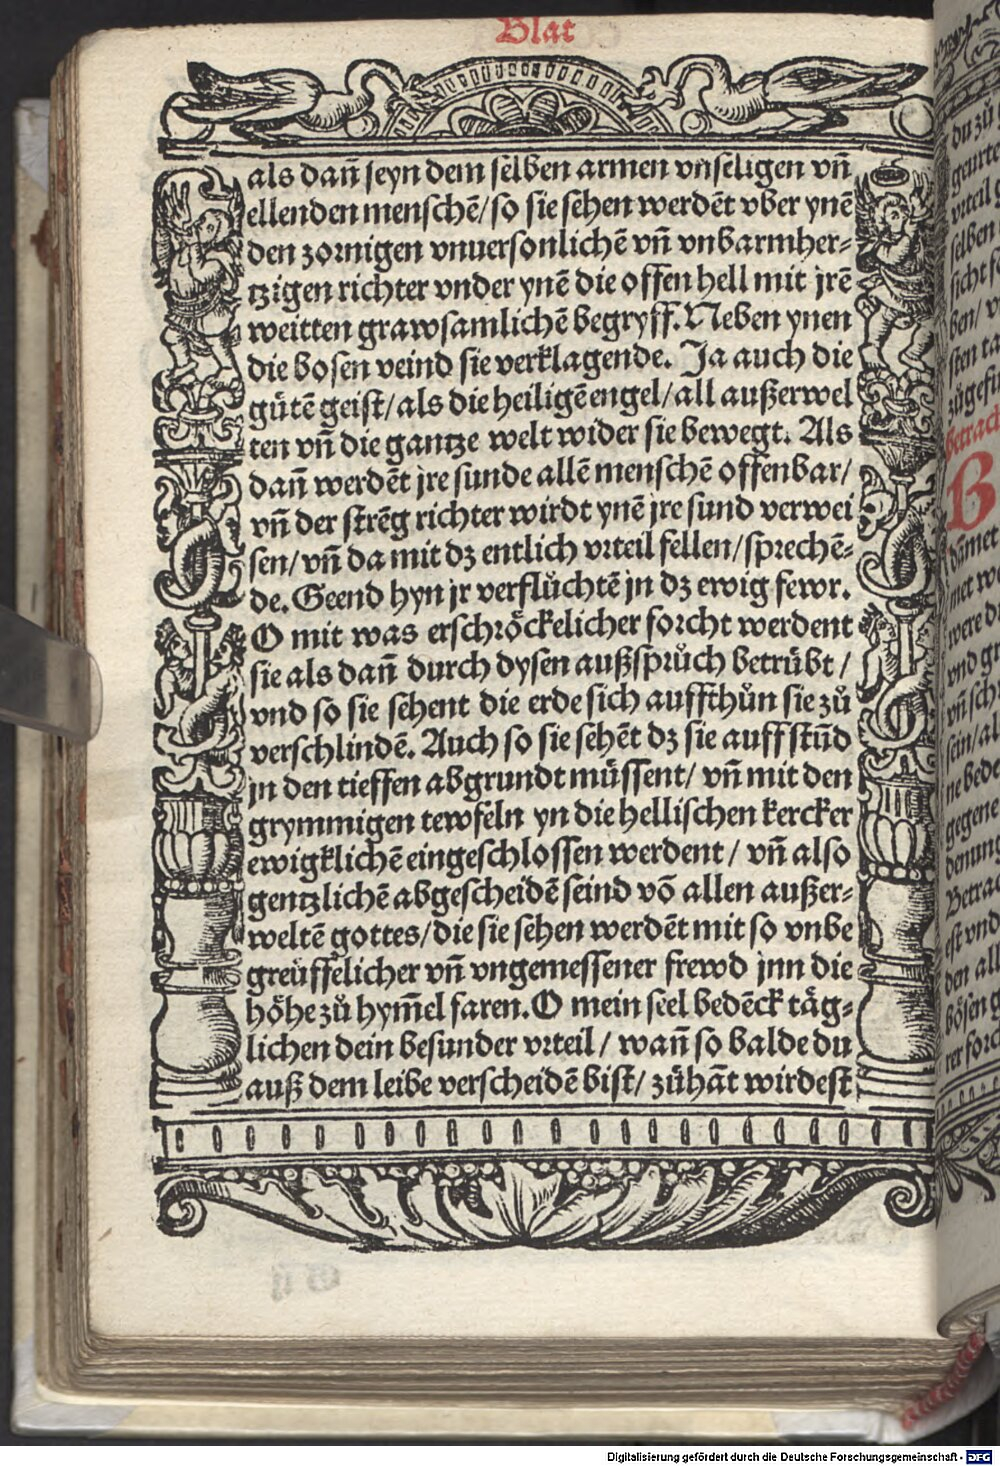 Blat
als dañ seyn dem selben armen vnseligen vñ
ellenden menschē/so sie sehen werdēt vber ynē
den zornigen vnuersonlichē vñ vnbarmher⸗
tzigen richter vnder ynē die offen hell mit jrē
weitten grawsamlichē begryff. Neben ynen
die bosen veind sie verklagende. Ja auch die
gůtē geist/als die heiligē engel/all außerwel
ten vñ die gantze welt wider sie bewegt. Als
dañ werdēt jre sunde allē menschē offenbar/
vñ der strēg richter wirdt ynē jre sund verwei
sen/vñ da mit dz entlich vrteil fellen/sprechē⸗
de. Geend hyn jr verflůchtē jn dz ewig fewr.
O mit was erschröckelicher forcht werdent
sie als dañ durch dysen außsprůch betrübt/
vnd so sie sehent die erde sich auffthůn sie zů
verschlindē. Auch so sie sehēt dz sie auff stūd
jn den tieffen abgrundt müssent/ vñ mit den
grymmigen tewfeln yn die hellischen kercker
ewigklichē eingeschlossen werdent/ vñ also
gentzlichen abgescheidē seind vō allen außer⸗
weltē gottes/die sie sehen werdēt mit so vnbe
greüffelicher vñ vngemessener frewd jnn die
höhe zů hym̄el faren. O mein seel bedēck täg⸗
lichen dein besunder vrteil/ wañ so balde du
auß dem leibe verscheidē bist/ zůhāt wirdest
du zů
geurte
vrteil
selben
sicht
ben/
sten ta
zůgefü
Betrac
B
met
were d
vnd
vñ
sein/al
ne bede
gegene
denung
Betrac
est vnd
den all
bösen g
rer forc
Digitalisierung gefördert durch die Deutsche Forschungsgemeinschaft - DFG